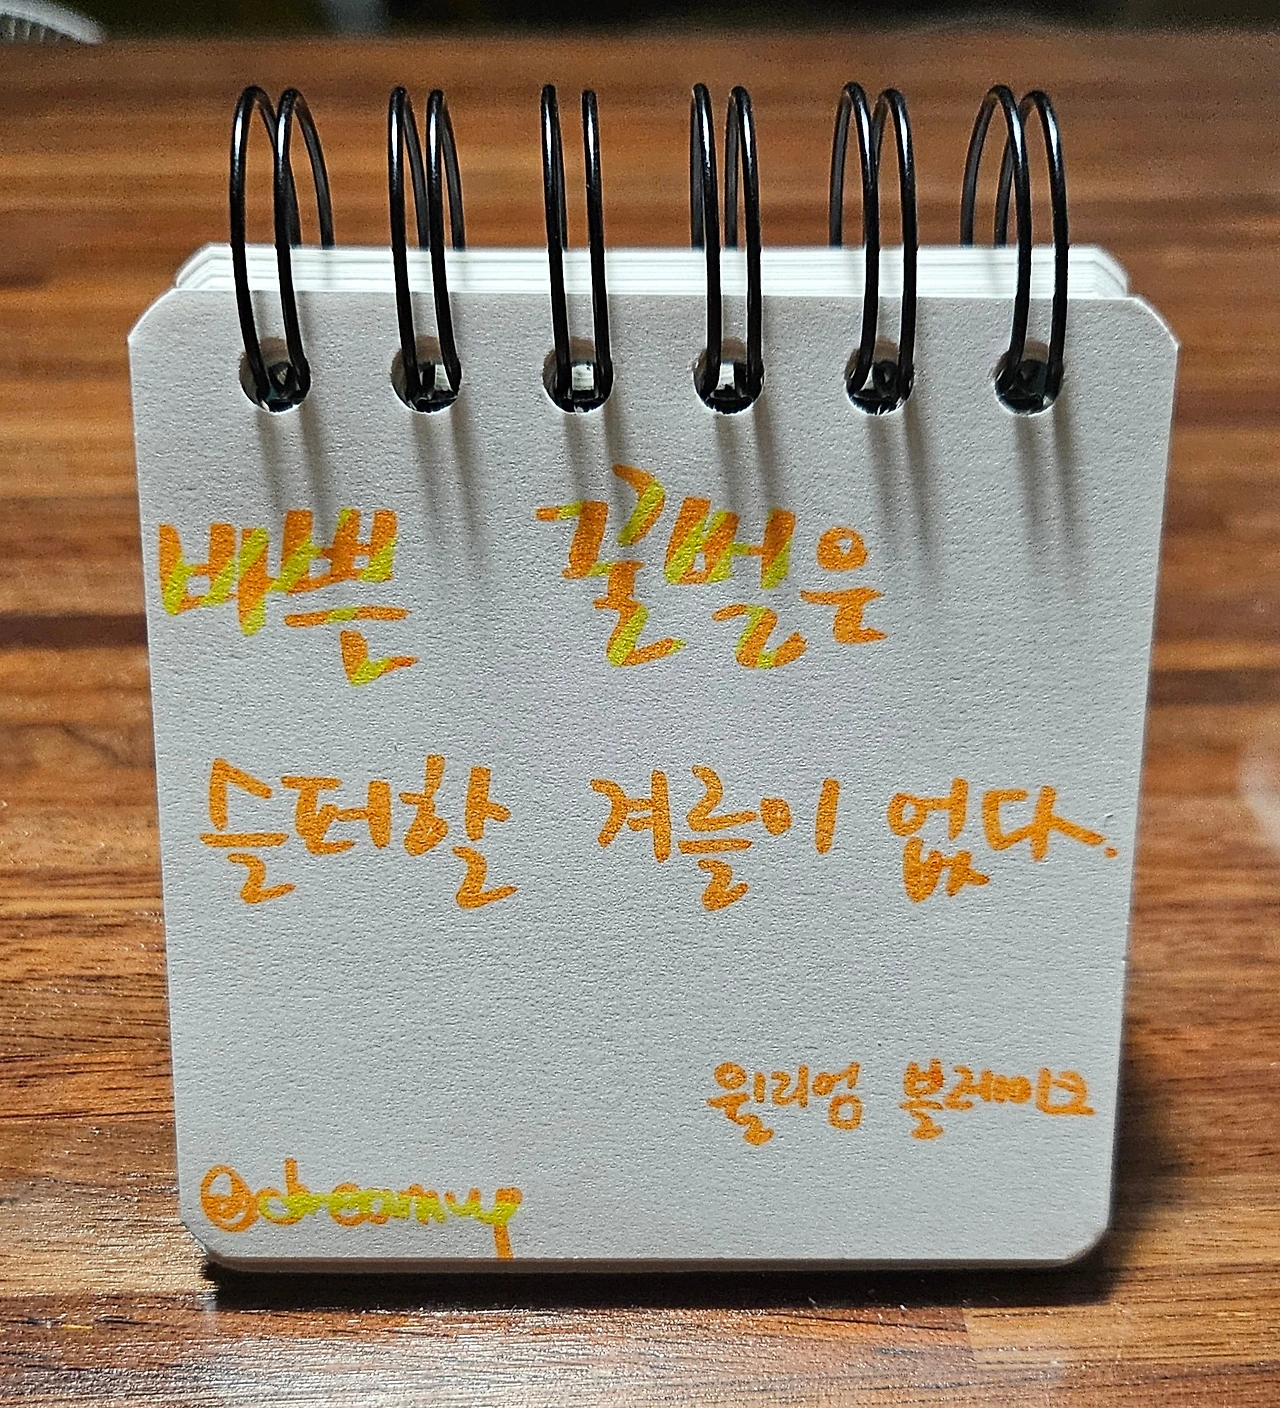 바쁜 꿀벌은
슬퍼할 겨를이 없다.
윌리엄 블레이크
@dreamup